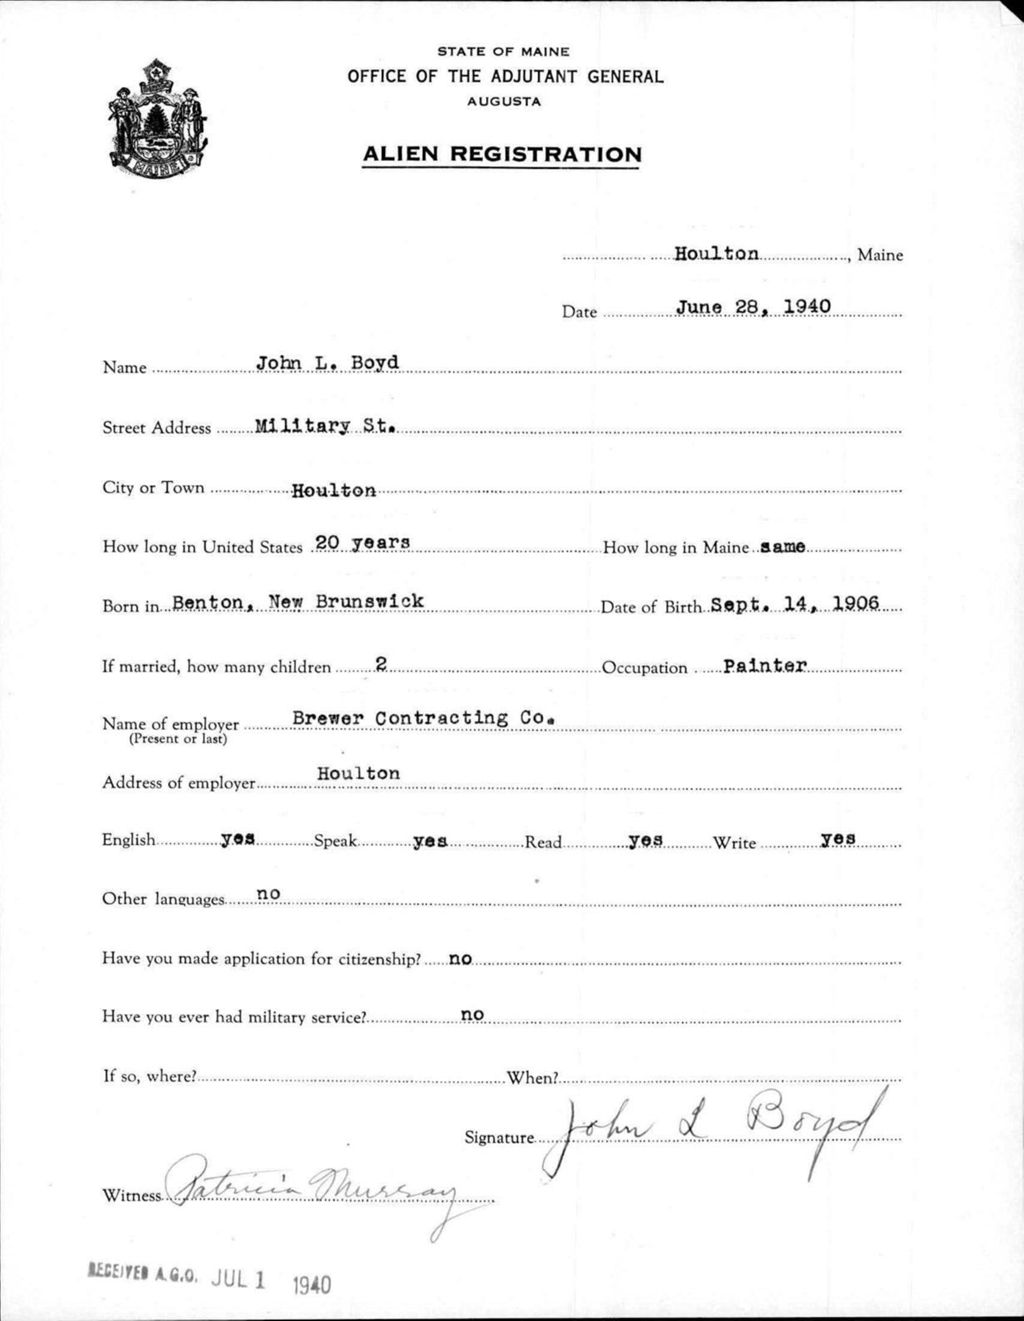 STATE OF MAINE
OFFICE OF THE ADJUTANT GENERAL
AUGUSTA
ALIEN REGISTRATION
MAINE
Houlton, Maine
Date June 28, 1940
Name John L. Boyd
Street Address Military St.
City or Town Houlton
How long in United States 20 years How long in Maine same
Born in Benton, New Brunswick Date of Birth Sept. 14, 1906
If married, how many children 2 Occupation Painter
Name of employer Brewer Contracting Co.
(Present or last)
Address of employer Houlton
English yes Speak yes Read yes Write yes
Other languages no
Have you made application for citizenship? no
Have you ever had military service? no
If so, where? When?
Signature John L Boyd
Witness Patricia Murray
RECEIVED A.G.O. JUL 1 1940